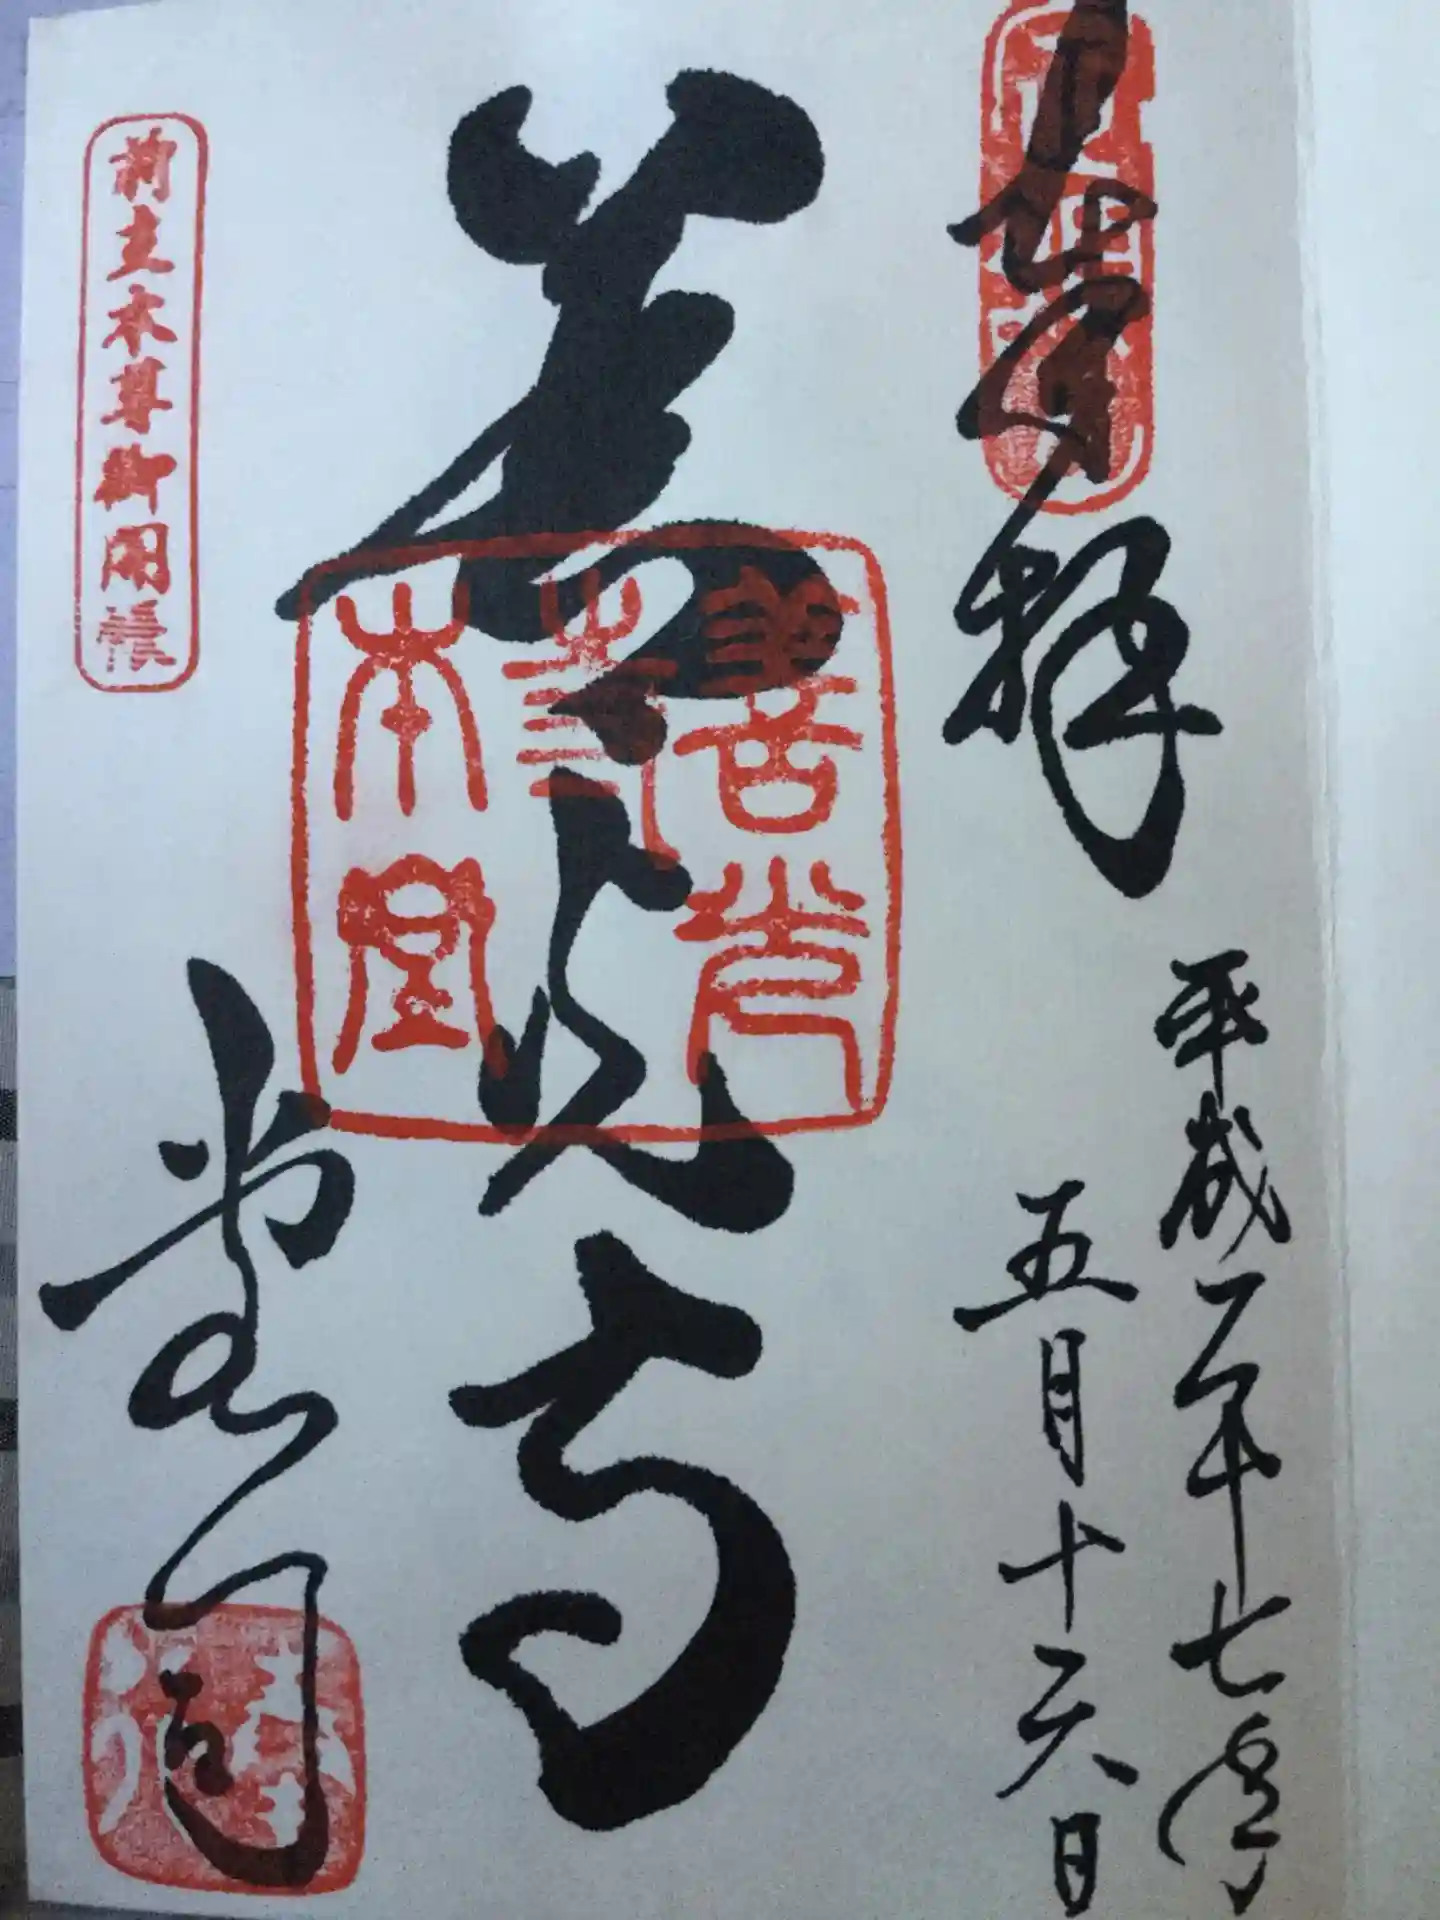 奉拝
平成二十七年
五月十六日
善光寺
善光
寺
本堂
堂司
前立本尊御開帳